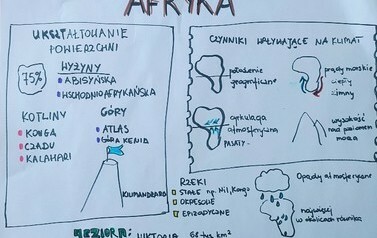 AFRYKA
UKSZTAŁTOWANIE
POWIERZCHNI
WYŻYNY
75%
ABISYŃSKA
WSCHODNIOAFRYKAŃSKA
KOTLINY
KONGA
CZADU
KALAHARI
GÓRY
ATLAS
GÓRA KENIA
KILIMANDŻARO
CZYNNIKI WPŁYWAJĄCE NA KLIMAT
położenie
geograficzne
prądy morskie
ciepły
zimny
cyrkulacja
atmosferyczna
PASATY
wysokość
nad poziomem
morza
RZEKI
STAŁE np. Nil, Kongo
OKRESOWE
EPIZODYCZNE
Opady atmosferyczne
najwięcej
w okolicach równika
JEZIORA: WIKTORIA 68 tys km²